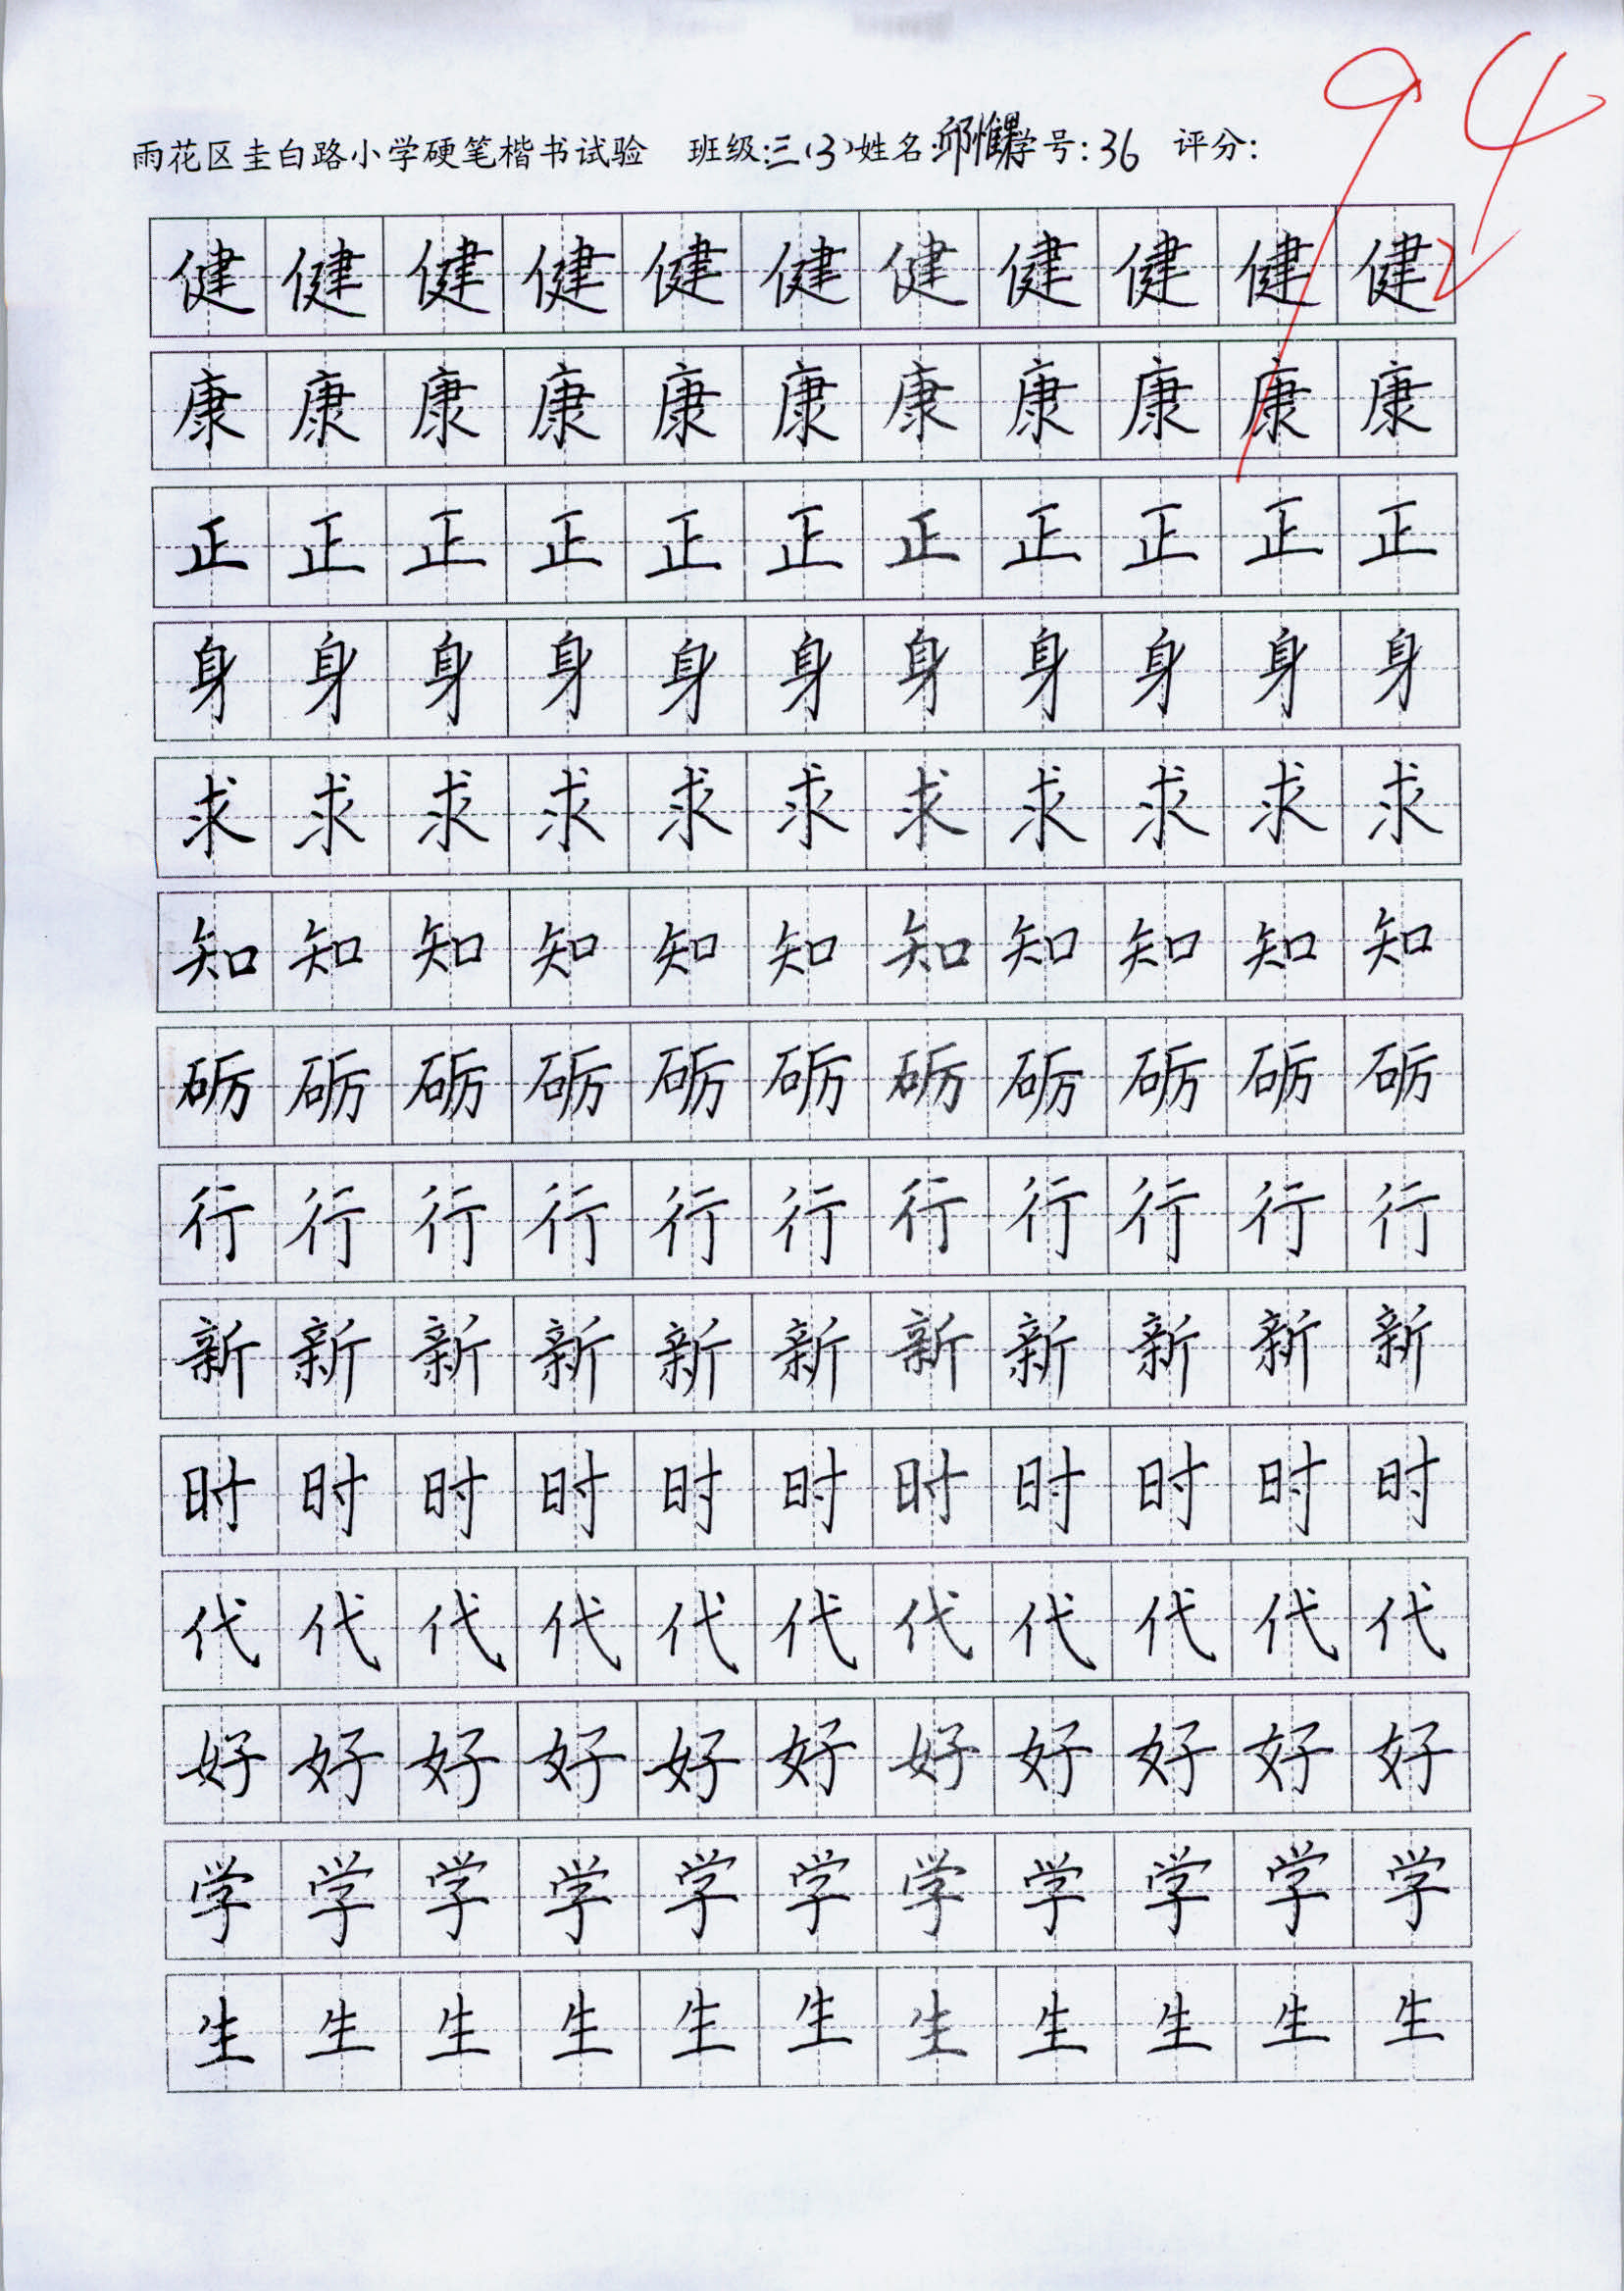 雨花区圭白路小学硬笔楷书试验 班级:三(3)姓名:邱惟 学号:36 评分:
94
健健健健健健健健健健健
康康康康康康康康康康康
正正正正正正正正正正正
身身身身身身身身身身身
求求求求求求求求求求求
知知知知知知知知知知知
砺砺砺砺砺砺砺砺砺砺砺
行行行行行行行行行行行
新新新新新新新新新新新
时时时时时时时时时时时
代代代代代代代代代代代
好好好好好好好好好好好
学学学学学学学学学学学
生生生生生生生生生生生